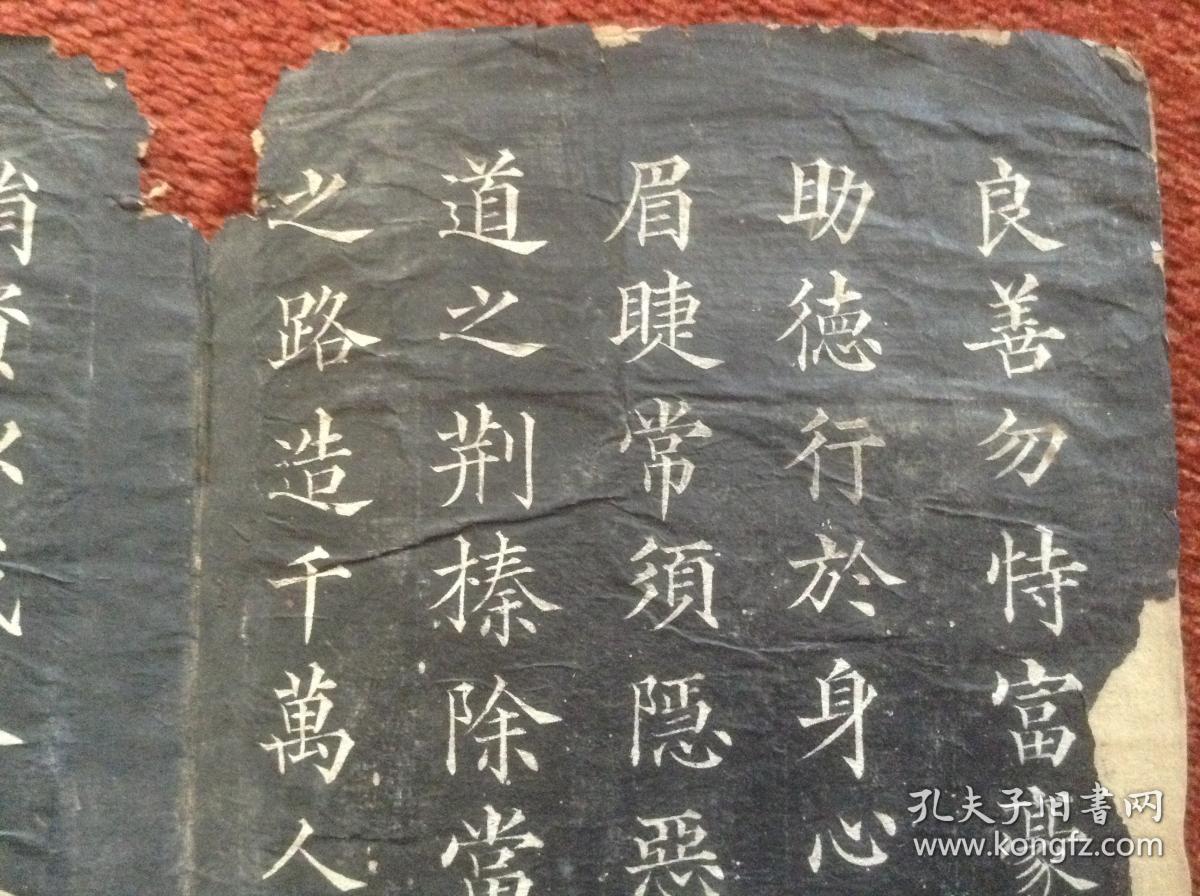 良善勿恃富豪
助德行於身心
眉睫常須隱惡
道之荆榛除當
之路造千萬人
孔夫子旧书网
www.kongfz.com